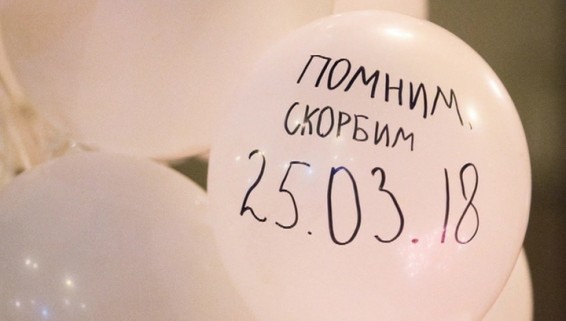 ПОМНИМ,
СКОРБИМ
25.03.18